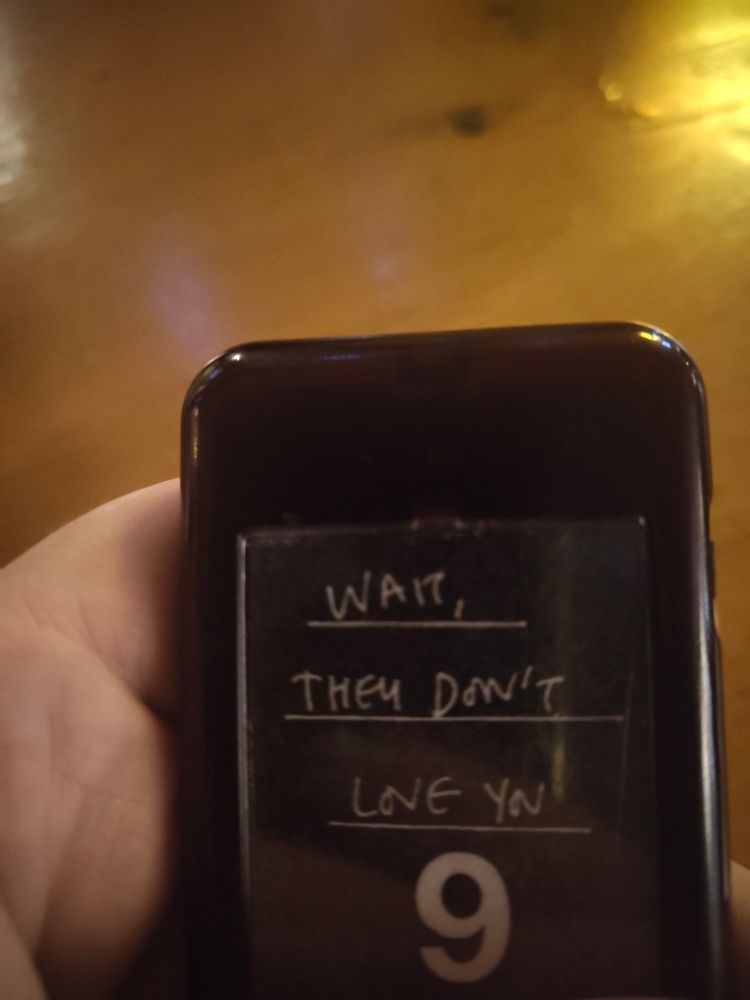 WAIT,
THEY DON'T
LOVE YOU
9